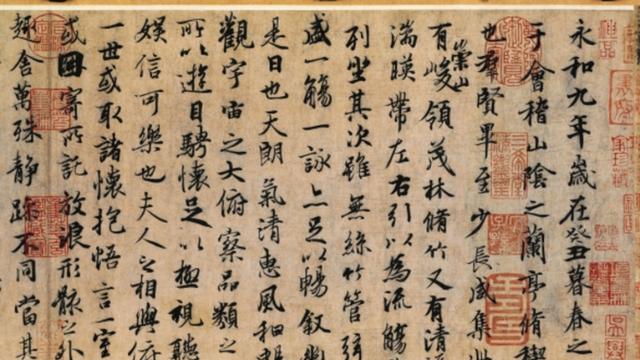 永和九年歲在癸丑暮春之
于會稽山陰之蘭亭脩稧
也羣賢畢至少長咸集此
有崇山峻領茂林脩竹又有清
湍暎帶左右引以為流觴
列坐其次雖無絲竹管弦
盛一觴一詠亦足以暢敘幽
是日也天朗氣清惠風和
觀宇宙之大俯察品類之
所以遊目騁懷足以極視聽
娛信可樂也夫人之相與俯
一世或取諸懷抱悟言一室
或因寄所託放浪形骸之外
趣舍萬殊静躁不同當其